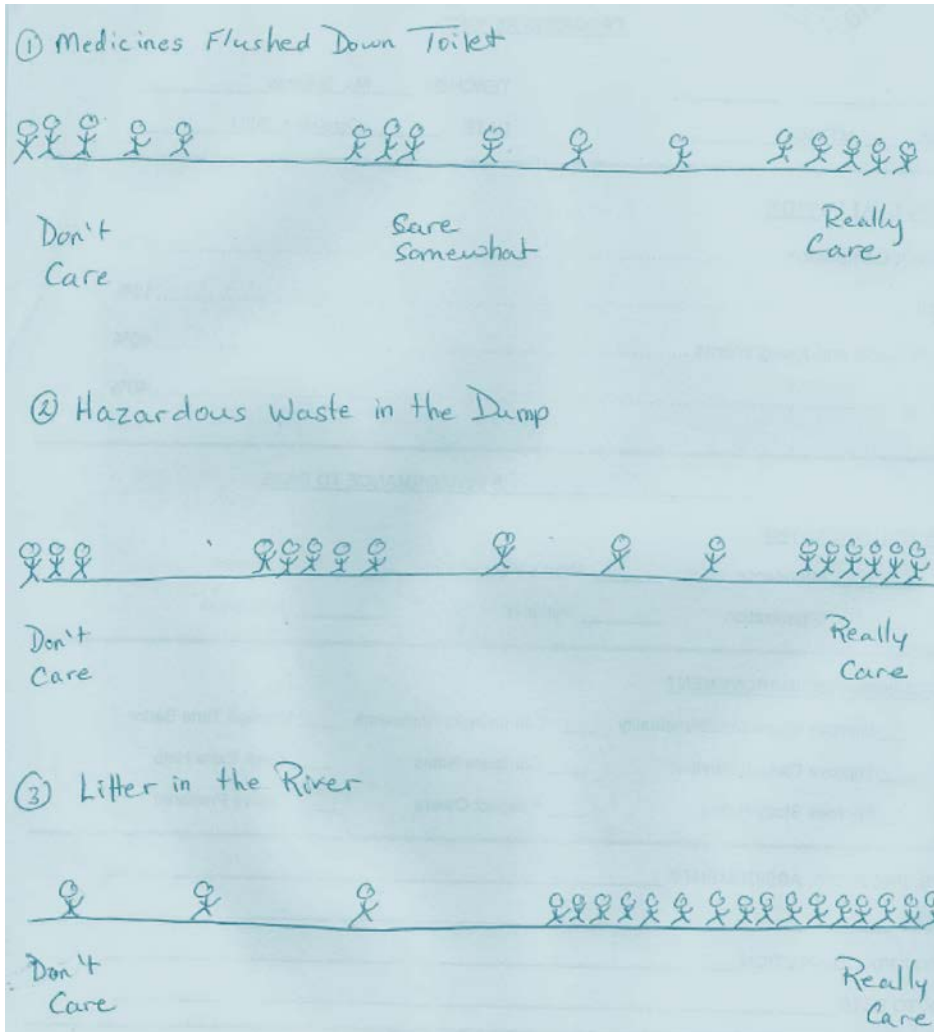 ① Medicines Flushed Down Toilet
Don't Care
Care Somewhat
Really Care
② Hazardous Waste in the Dump
Don't Care
Really Care
③ Litter in the River
Don't Care
Really Care